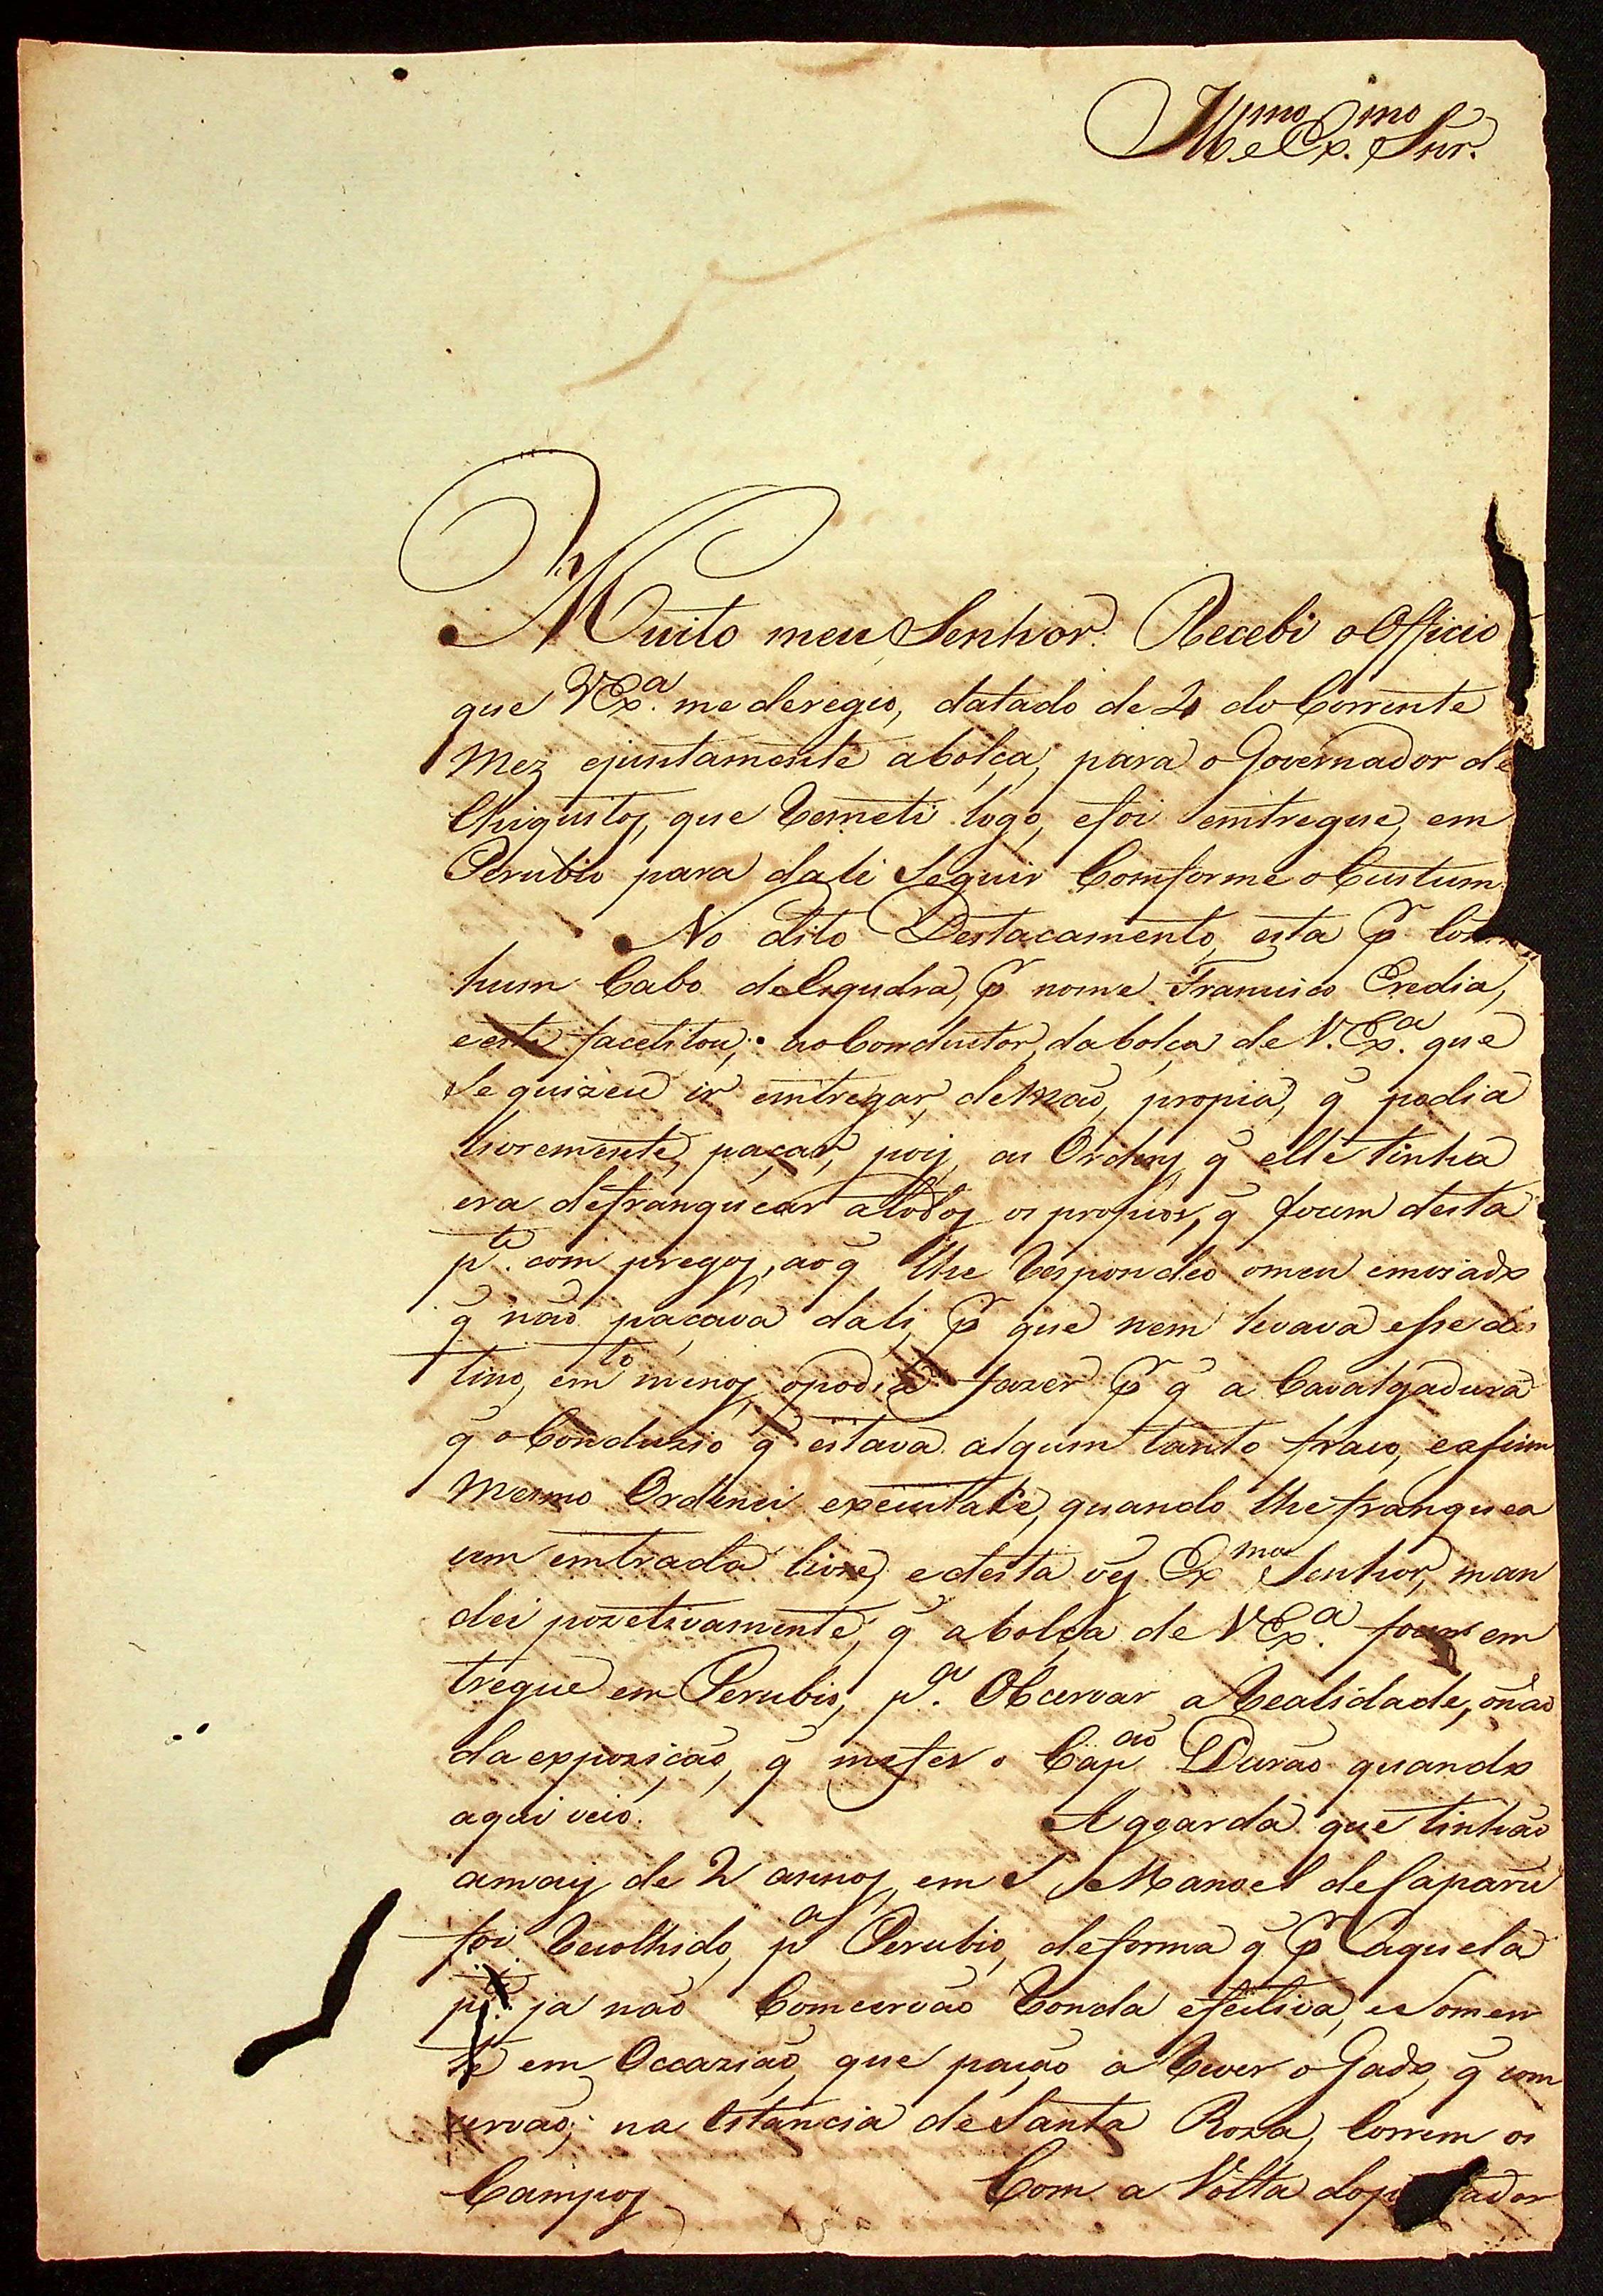 Ill.mo e Ex.mo Snr.
Muito meu Senhor. Recebi o Officio
que V Ex.a me deregio, datado de 4 do Corrente
Mez ejuntamente abolça, para o Governador de
Chiquitos, que Remeti logo, efoi emtregue, em
Perubio para dali Seguir Comforme o Custum
No dito Destacamento, esta p̃
hum Cabo deEsqudra, p̃ nome Francisco Eredia,
eeste facelitou, ao Conductor, da bolça de V. Ex.a que
Se quizece ir emtregar, demão, propia, q̃ podia
livremente, paçar, pois, as Ordens, q̃ elle tinha
era defranquear atodos os propios, q̃ focem desta
p.te com pregos, ao q̃ lhe Respondeo omeu emviado
q̃ não paçava dali, p̃ que nem levava esse des
tino, em.to menos, opodia fazer p̃ q̃ a Cavalgadura
q̃ o Conduzio q̃ estava algum tanto fraco, easim
Mesmo Ordenei exeicutace, quando lhe franquea
cem emtrada livre, edesta ves Ex.mo Senhor, man
dei pozetivamente, q̃ abolça de V Ex.a foce em
tregue em Perubio, p.a Obcervar a Realidade, ounão
da expozição, q̃ mefes o Cap.ão Durão quando
aqui veio. Agoarda que tinhão
amais de 2 annos, em S. Manoel de Caparu
foi Recolhido, p.a Perubio, deforma q̃ p̃ aquela
p.te ja não Comcervão Ronda efectiva, eSomen
te em Occazião, que pação a Rever o Gado, q̃ com
cervão, na Estancia de Santa Roza, Correm os
Campos Com a Volta do